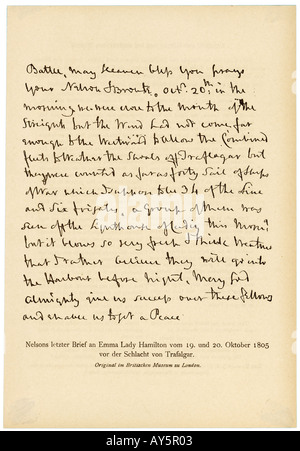 Battle, may Heaven bless you prays
your Nelson & Bronte, Octr. 20th in the
morning we were close to the mouth of the
Streights but the Wind had not come far
enough to the Westward to allow the Combined
fleets to Weather the Shoals off Traflagar but
they were counted as far as forty Sail of Ships
of War which I suppose to be 34 of the Line
and six frigates, a Group of them was
seen off the Lighthouse of Cadiz this Morng
but it blows so very fresh & thick Weather
that I rather believe they will go into
the Harbour before night, May God
Almighty give us success over these fellows
and enable us to get a Peace
Nelsons letzter Brief an Emma Lady Hamilton vom 19. und 20. Oktober 1805
vor der Schlacht von Trafalgar.
Original im Britischen Museum zu London.
alamy
alamy
Image ID: AY5R03
www.alamy.com